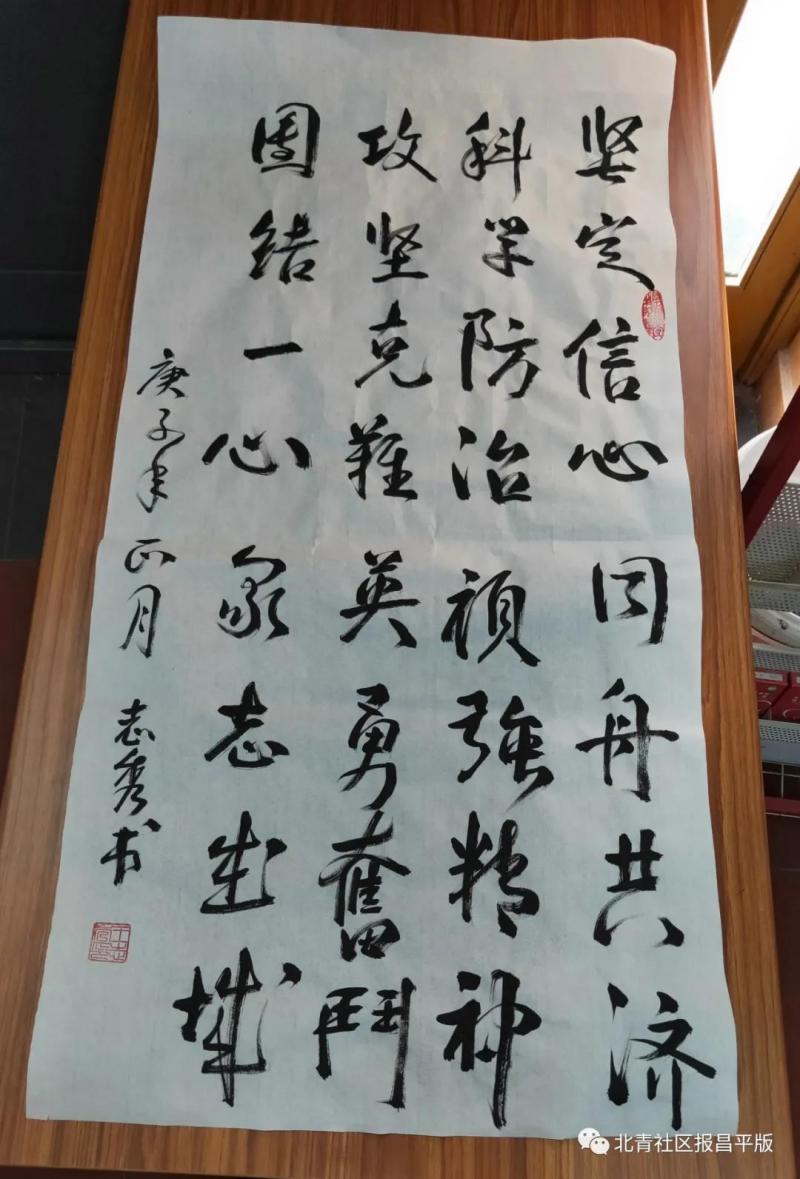 坚定信心同舟共济
科学防治顽强精神
攻坚克難英勇奮鬥
團结一心衆志成城
庚子年正月 志秀书
北青社区报昌平版